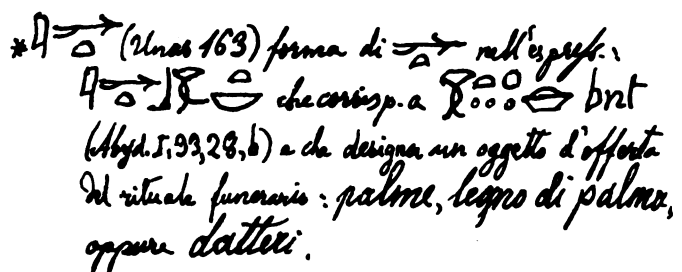 * (Unas 163) forma di nell'espress.:
che corrisp. a bnt
(Abyd. I, 93, 28, b) e che designa un oggetto d'offerta
del rituale funerario: palme, legno di palma,
oppure datteri.